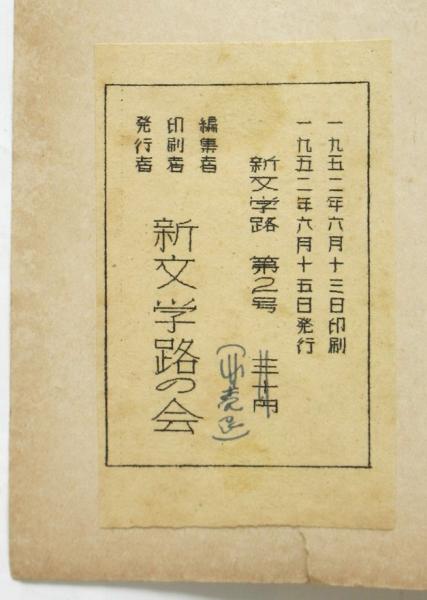 一九五二年六月十三日印刷
一九五二年六月十五日発行
新文学路 第2号 三十円
(非売品)
編集者
印刷者
発行者
新文学路の会